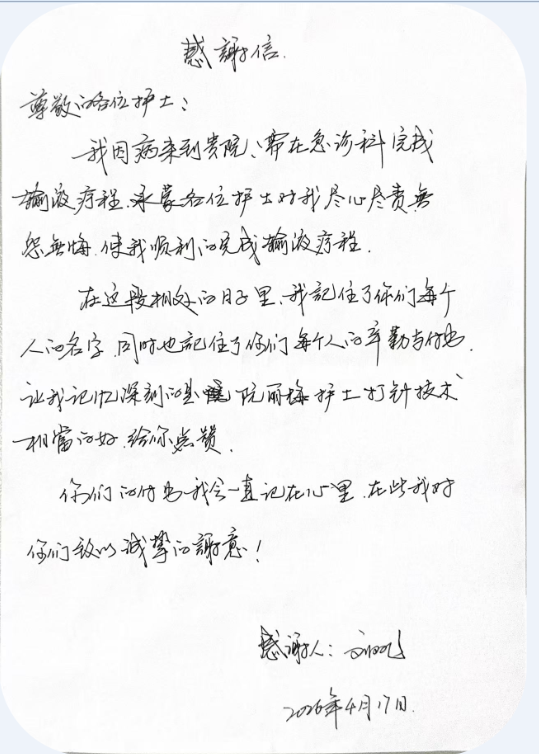 感謝信.
尊敬的各位护士:
我因病来到贵院、需在急诊科完成
输液疗程.承蒙各位护士对我尽心尽责無
怨無悔.使我顺利的完成输液疗程.
在这段相处的日子里.我記住了你们每个
人的名字.同时也記住了你们每个人的辛勤与付出.
让我记忆深刻的是 阮丽梅护士打针技术
相当的好.给你点赞.
你们的付出我会一直记在心里.在此我对
你们致以诚挚的謝意!
感谢人:
2026年4月17日.